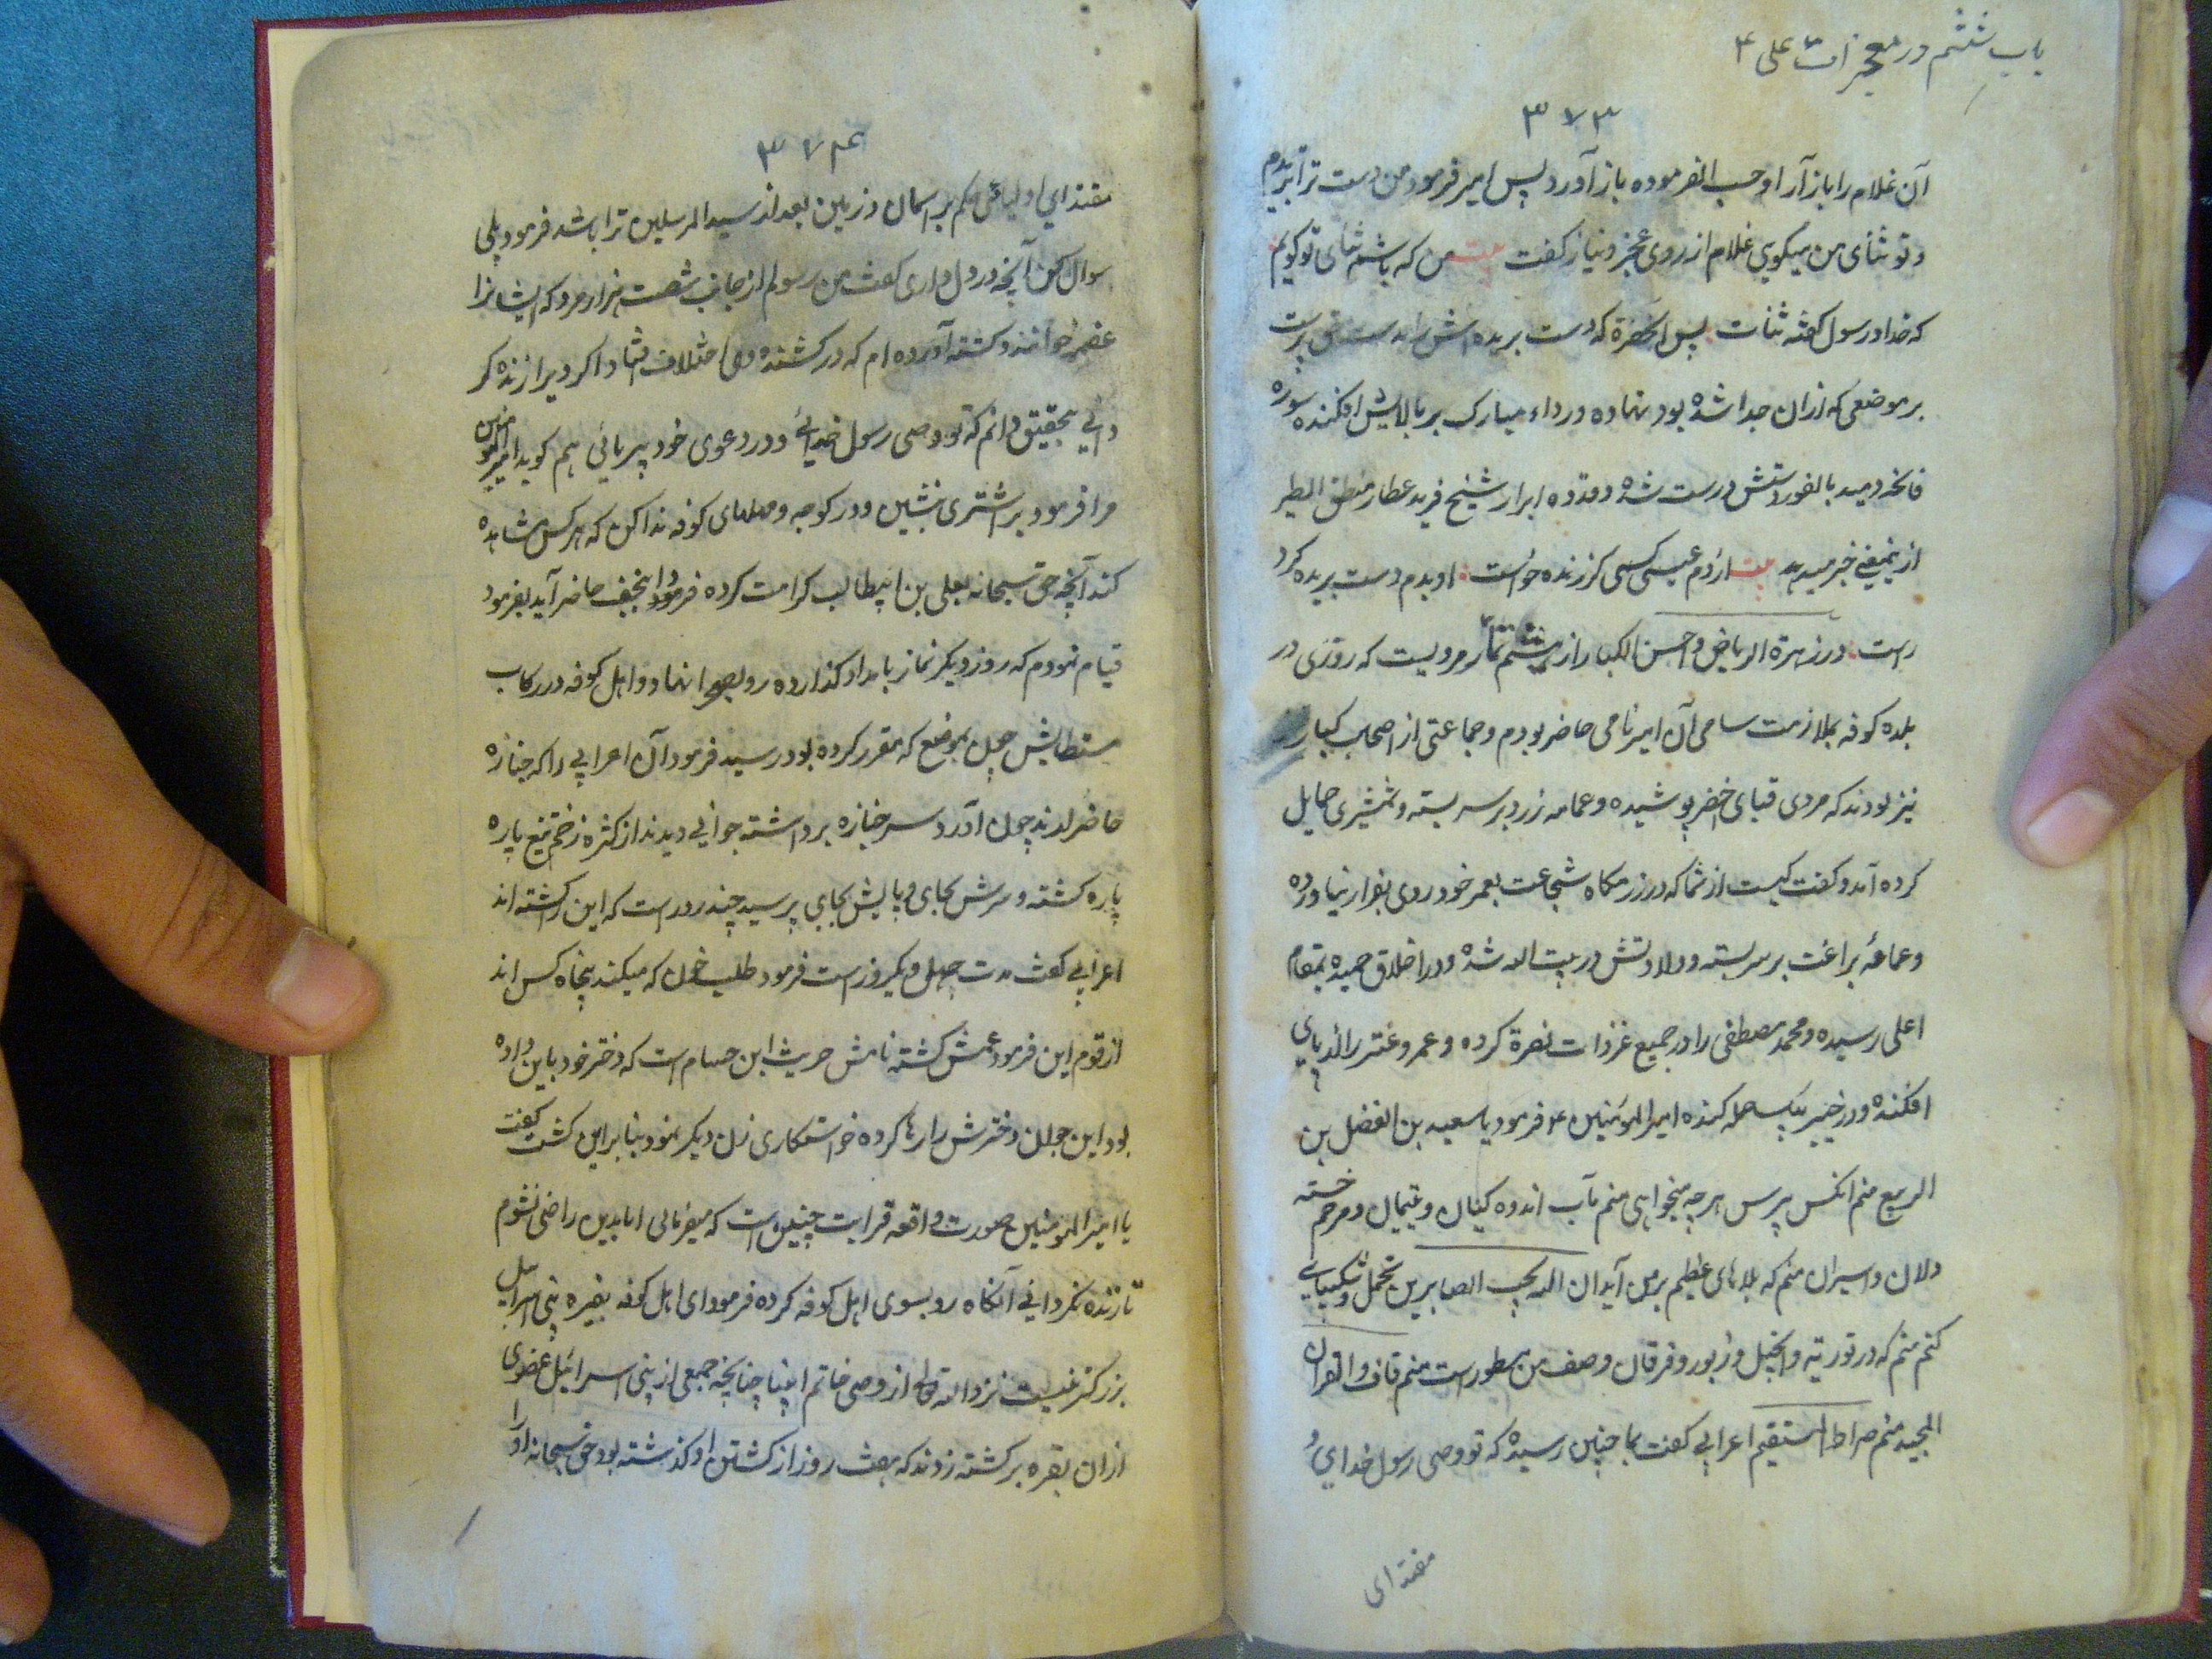 باب ششم در معجزات علی ع
۳۷۳
آن غلام را باز آر او حسب الفرموده باز آورد پس امیر فرمود من دست ترا بریدم
و تو ثنای من میکویی غلام از روی عجز و نیاز کفت بیت من که باشم ثنای تو کویم
که خدا و رسول کفته ثنات پس آنحضرة که دست بریده اش بدست حق پرست
بر موضعی که ازان جدا شده بود نهاده و رداء مبارک بر بالایش افکنده سوره
فاتحه دمید بالفور دستش درست شده و قدوه ابرار شیخ فرید عطار منطق الطیر
ازینمعنی خبر میدهد بیت از دم عیسی کسی کر زنده خواست او بدم دست بریده کرد
راست در زهرة الریاض و احسن الکبار از میثم تمار مرویست که روزی در
بلده کوفه بملازمت سامی آن امیر نامی حاضر بودم و جماعتی از اصحاب کبار
نیز بودند که مردی قبای خضر پوشیده و عمامه زرد بر سر بسته و شمشیری حمایل
کرده آمد و کفت کیست از شما که در رزمکاه شجاعت بعمر خود روی بفرار نیاورده
و عمامهٔ براعت بر سر بسته و ولادتش در بیت الله شده و در اخلاق حمیده بمقام
اعلی رسیده و محمد مصطفی را در جمیع غزوات نصرة کرده و عمرو عنتر را از پای
افکنده و در خیبر بیک حمله کنده امیر المومنین ع فرمود یا سعید بن الفضل بن
الربیع منم انکس بپرس هرچه میخواهی منم مآب اندوه کنان و یتیمان و مرحم خسته
دلان و اسیران منم که بلاهای عظیم بر من آید ان الله یحب الصابرین تحمل و شکیبایی
کنم منم که در توریة و انجیل و زبور و فرقان وصف من مسطور است منم قاف و القران
المجید منم صراط المستقیم اعرابی کفت بما چنین رسیده که تو وصی رسول خدای و
مقتدای
۳۷۴
مقتدای اولیائی حکم بر اسمان و زمین بعد از سید المرسلین ترا باشد فرمود بلی
سوال کن آنچه در دل داری کفت من رسولم از جانب شصت هزار مرد که ایشانرا
عقیمه خوانند و کشته آورده ام که در کشنده وی اختلاف افتاد اکر ویرا زنده کر
دانی بتحقیق دانم که تو وصی رسول خدایی و در دعوی خود پا بر جائی میثم کوید امیر المومنین
مرا فرمود بر اشتری بنشین و در کوچه و محلهای کوفه ندا کن که هر کس مشاهده
کند آنچه حق سبحانه بعلی بن ابیطالب کرامت کرده فردا بنجف حاضر آید بفرموده
قیام نمودم که روز دیکر نماز بامداد کذارده رو بصحرا نهاد و اهل کوفه در رکاب
مستطابش چون بموضع که مقرر کرده بود رسید فرمود آن اعرابی را که جنازه
حاضر اوردند چون آورد سر جنازه برداشته جوانی دیدند از کثرة زخم تیغ پاره
پاره کشته و سرش بجای و پایش بجایی پرسید چند روز است که این را کشته اند
اعرابی کفت مدت چهل و یکروز است فرمود طلب خون که میکند پنجاه کس اند
از قوم این فرمود عمش کشته نامش حریث ابن حسام است که دختر خود باین داده
بود این جوان دخترش را رها کرده خواستکاری زن دیکر نمود بنابر این کشت کفت
یا امیر المومنین صورت واقعه قرابت چنین است که میفرمائی اما بدین راضی نشوم
تا زنده نکردانی آنکاه رو بسوی اهل کوفه کرده فرمود ای اهل کوفه بقره بنی اسراییل
بزرکتر نیست نزد الله تعالی از وصی خاتم انبیا چنانچه جمعی از بنی اسرائیل عضوی
ازان بقره بر کشته زدند که هفت روز از کشتن او کذشته بود حق سبحانه او را